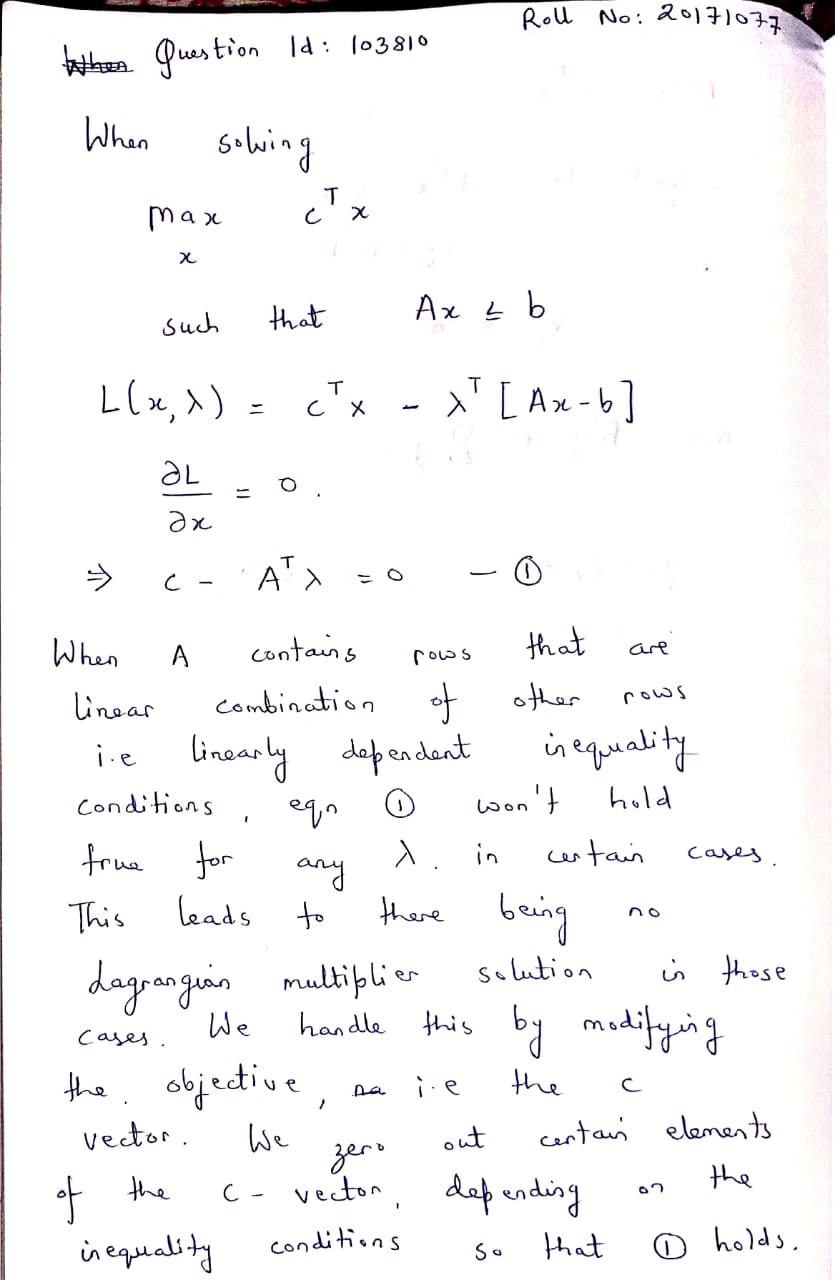 Roll No: 20171077
When Question Id: 103810
When solving
max c^T x
x
such that Ax ≤ b
L(x, λ) = c^T x - λ^T [Ax - b]
∂L
∂x = 0.
⇒ c - A^T λ = 0 - ①
When A contains rows that are
linear combination of other rows
i.e linearly dependent inequality
conditions, eqn ① won't hold
true for any λ. in certain cases.
This leads to there being no
Lagrangian multiplier solution in those
cases. We handle this by modifying
the objective, i.e the c
vector. We zero out certain elements
of the c-vector, depending on the
inequality conditions so that ① holds.